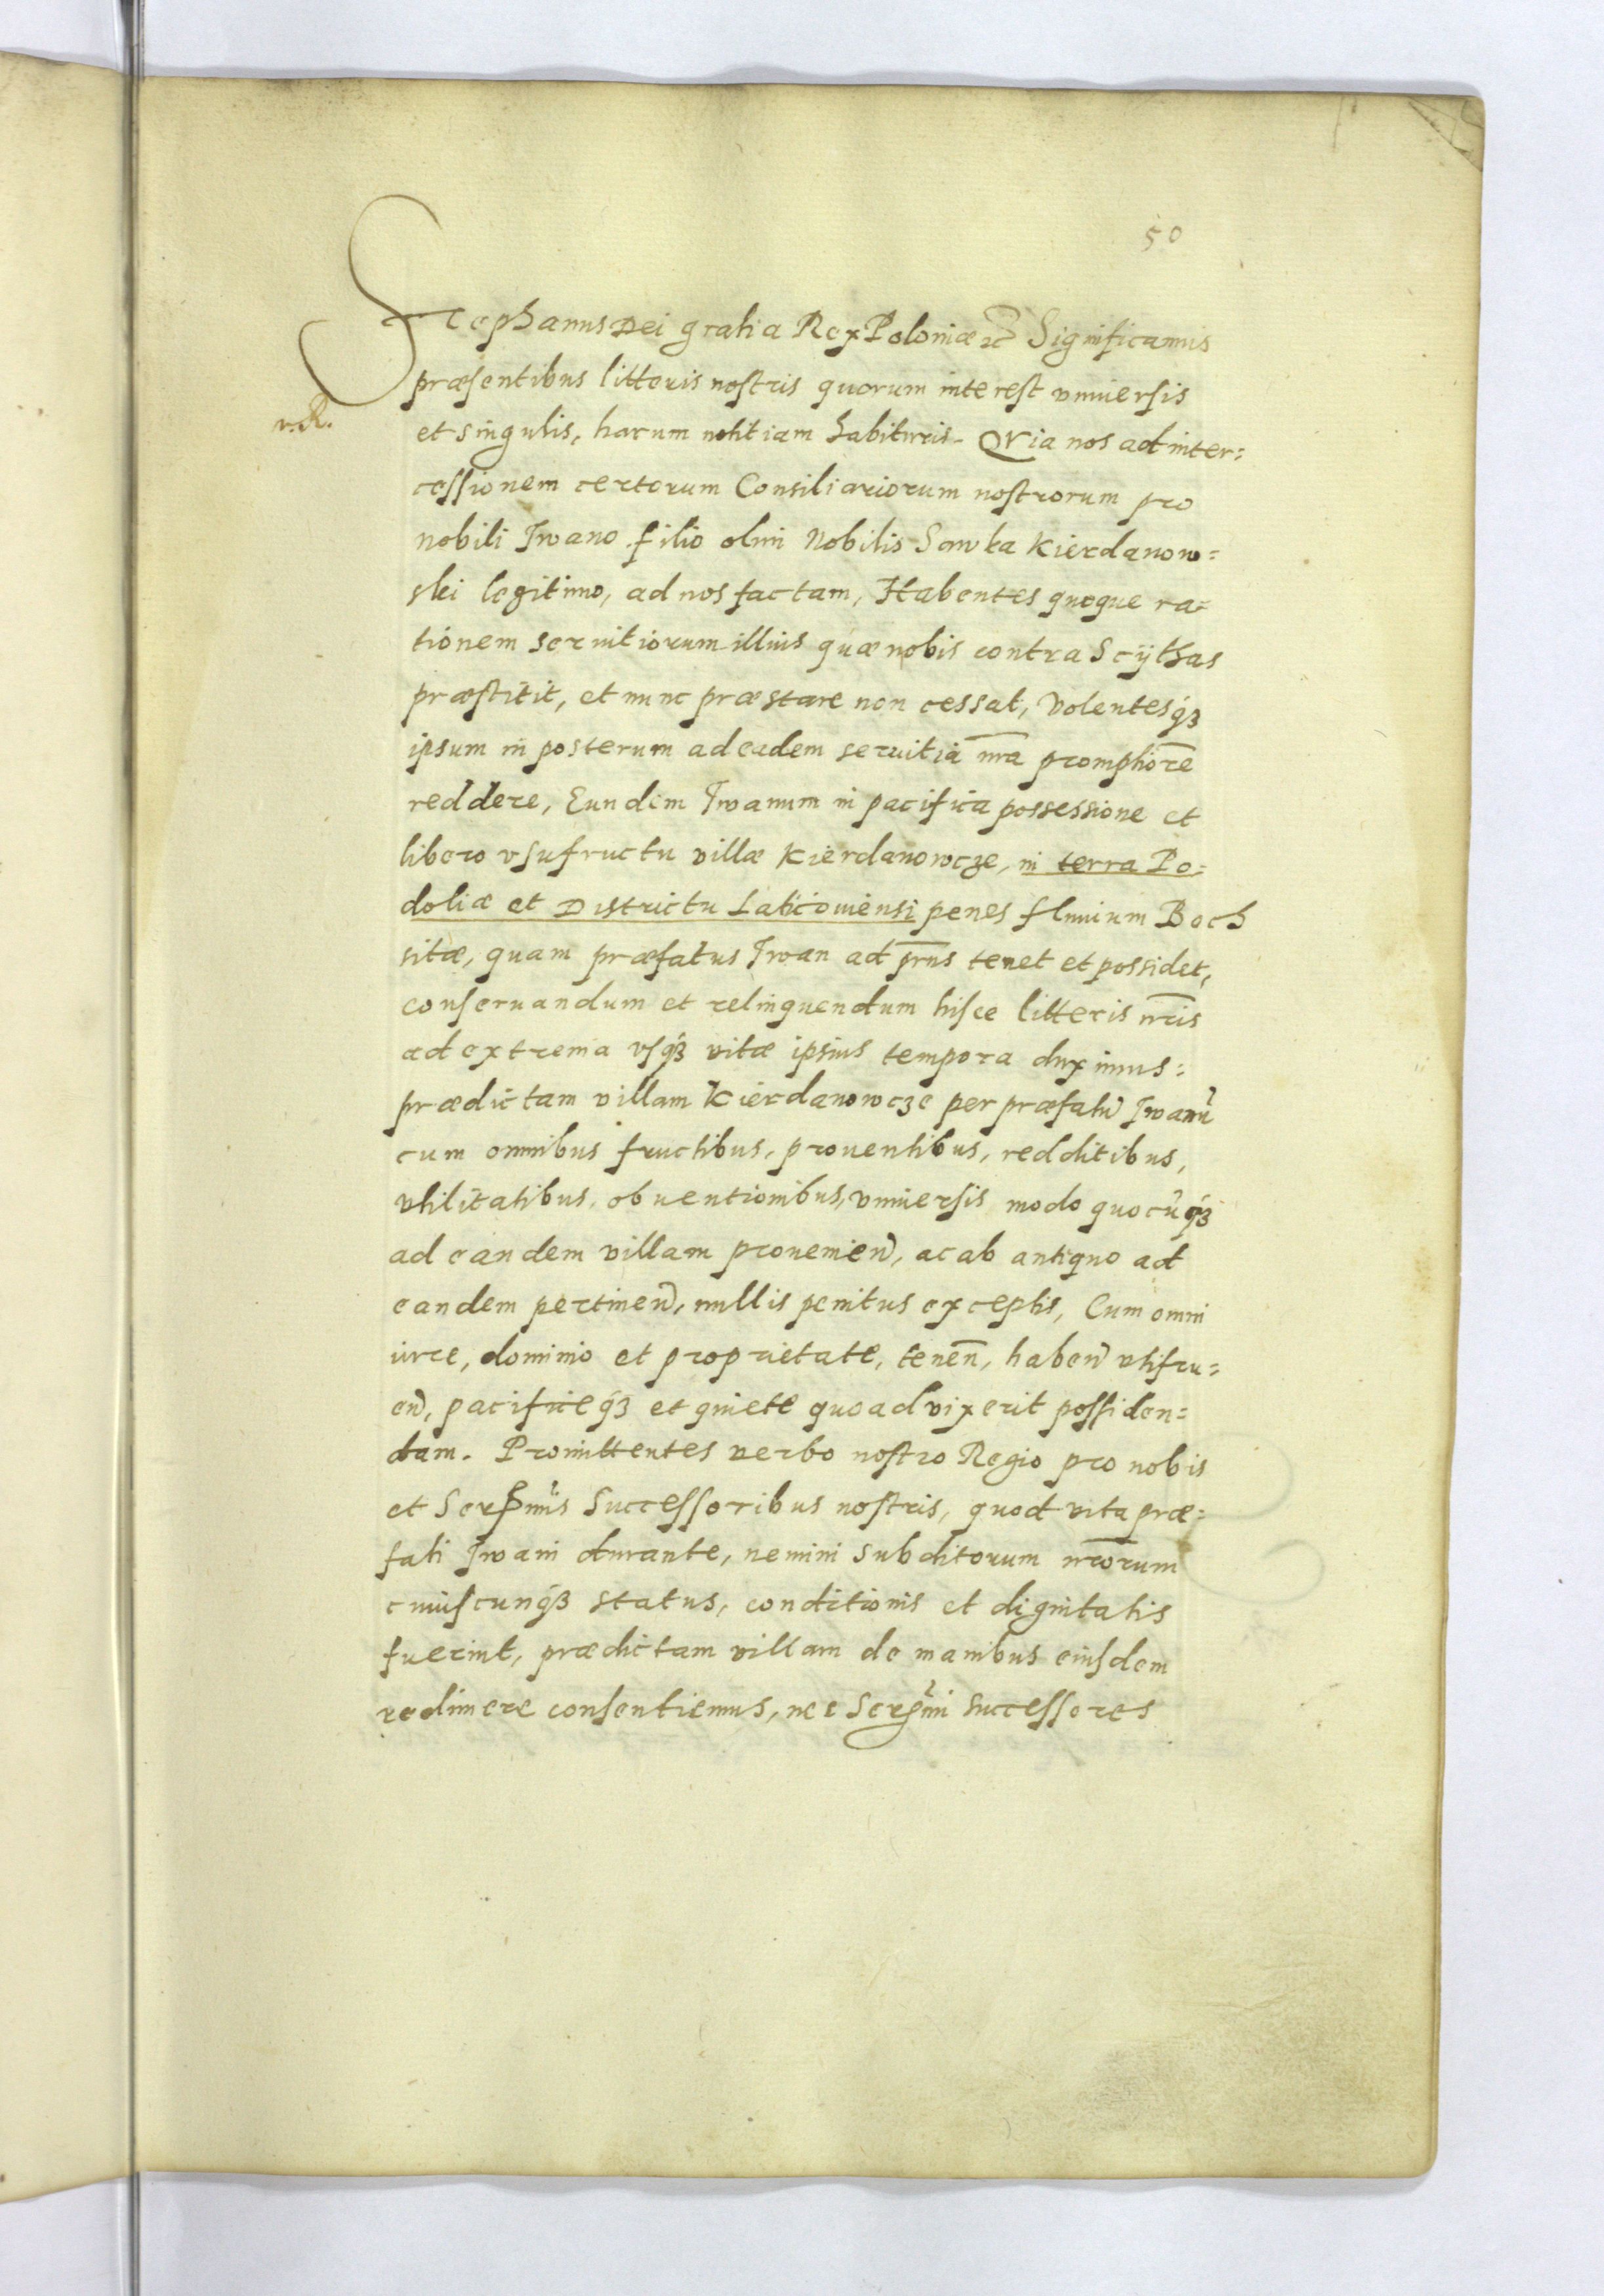 50
Stephanus Dei gratia Rex Poloniæ etc Significamus
præsentibus litteris nostris quorum interest vniuersis
v. R.
et singulis, harum notitiam habituris. Quia nos ad inter=
cessionem certorum Consiliariorum nostrorum pro
nobili Iwano filio olim Nobilis Sawka Kierdanow=
ski legitimo, ad nos factam, Habentes quoque ra=
tionem seruitiorum illius quæ nobis contra Scÿthas
præstitit, et nunc præstare non cessat, Volentesq́ꝫ
ipsum in posterum ad eadem seruitia nr̄a promptiorē
reddere, Eundem Iwanum in pacifica possessione et
libero vsufructu villæ Kierdanowcze, in terra Po=
doliæ et Districtu Laticouiensi penes fluuium Boch
sitæ, quam præfatus Iwan ad prn̄s tenet et possidet,
conseruandum et relinquendum hisce litteris nr̄is
ad extrema vsq́ꝫ vitæ ipsius tempora duximus:
prædictam villam Kierdanowcze per præfatū Iwanū
cum omnibus fructibus, prouentibus, redditibus,
vtilitatibus, obuentionibus, vniuersis modo quocūq́ꝫ
ad eandem villam prouenien̄, ac ab antiquo ad
eandem pertinen̄, nullis penitus exceptis, Cum omni
iure, dominio et proprietate, tenen̄, haben̄ vtifru=
en̄, pacificeq́ꝫ et quiete quoad vixerit possiden=
dam. Promittentes verbo nostro Regio pro nobis
et Serſmis Successoribus nostris, quod vita præ=
fati Iwani durante, nemini subditorum nr̄orum
cuiuscunq́ꝫ status, conditionis et dignitatis
fuerint, prædictam villam de manibus eiusdem
redimere consentiemus, nec Serſmi Successores